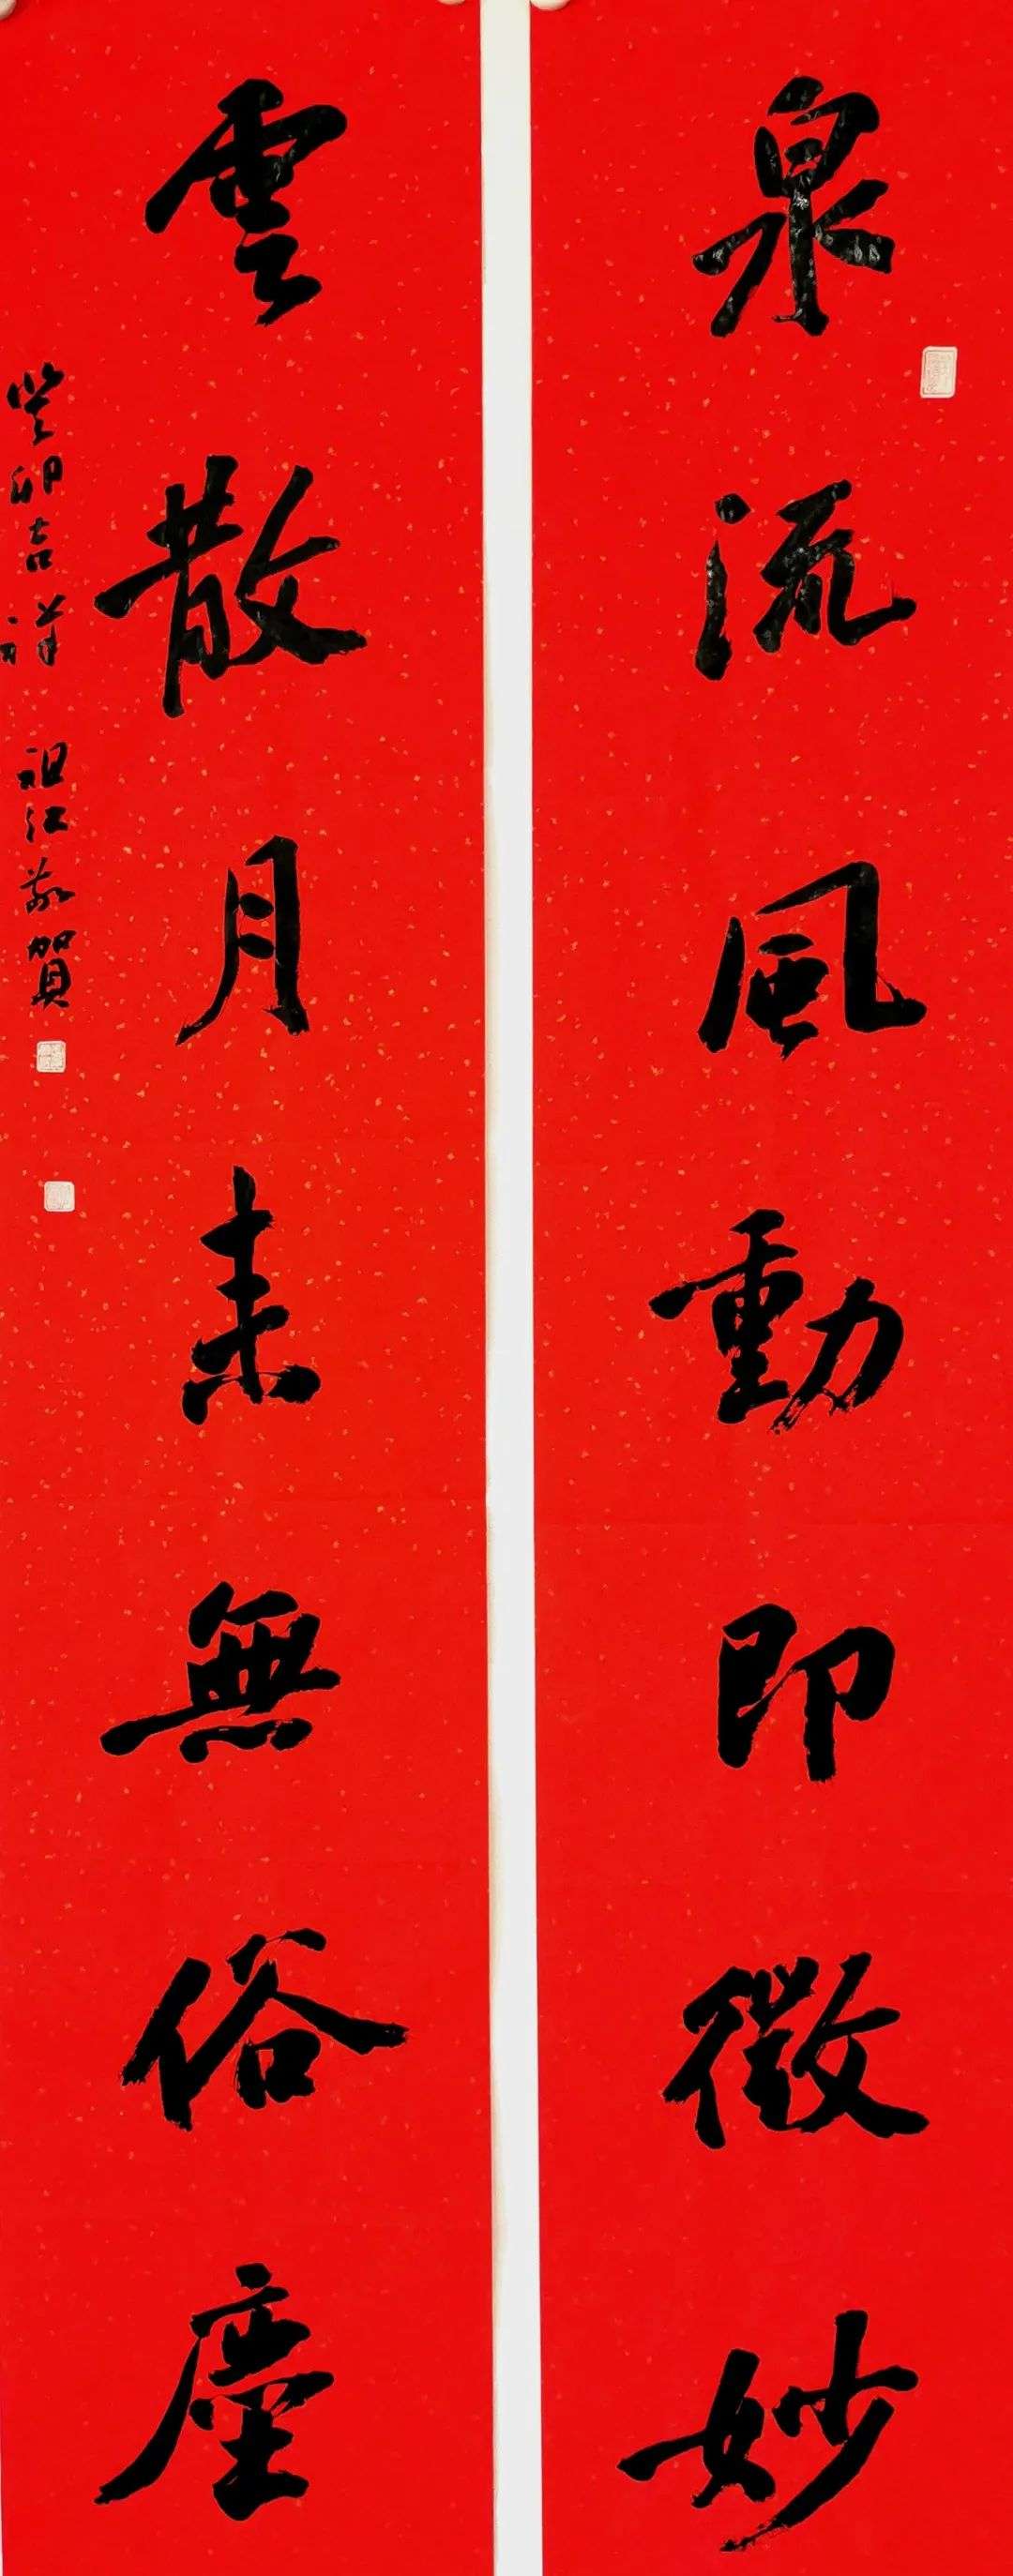 泉流風動即微妙
雲散月来無俗塵
癸卯吉祥 祖江敬賀